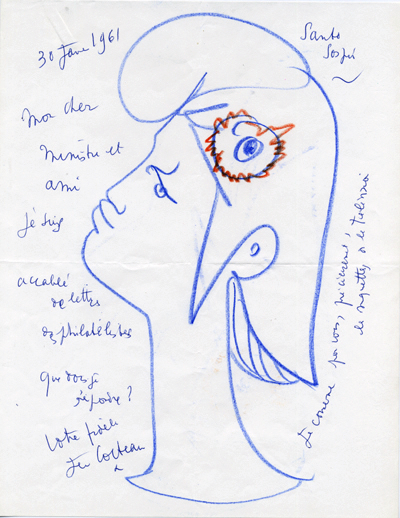 30 Janv 1961
Santo
Sospir
Mon cher
ministre et
ami
Je suis
accablé
de lettres
de philatélistes
Que dois-je
répondre ?
Votre fidèle
Jean Cocteau
Je conserve pour vous, précieusement,
les maquettes de